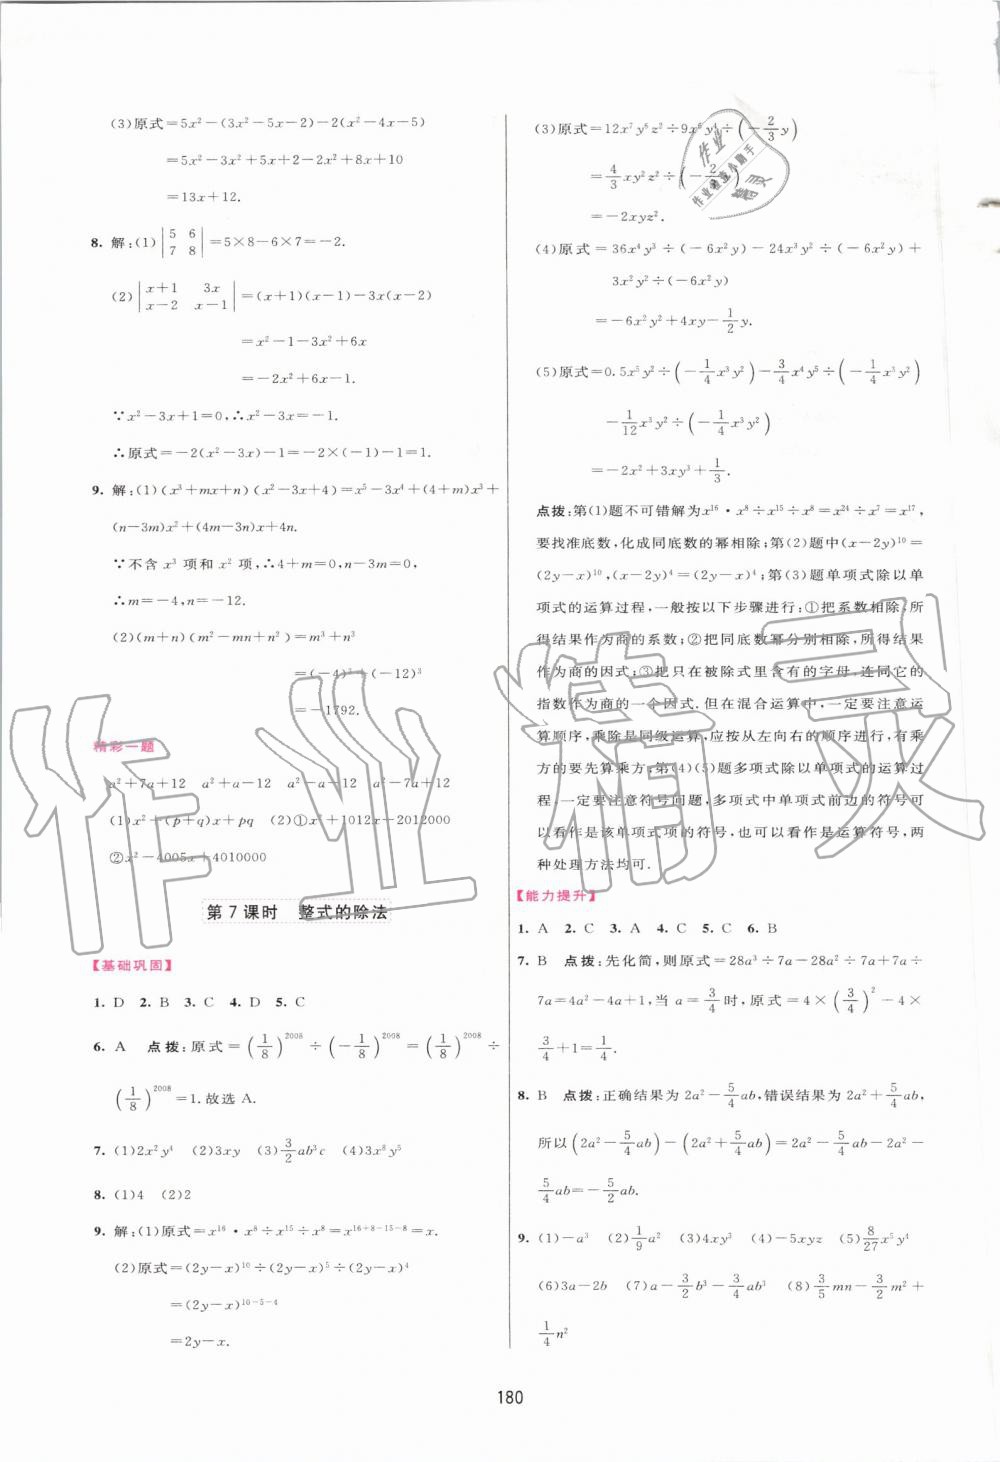 (3)原式=5x²-(3x²-5x-2)-2(x²-4x-5)
=5x²-3x²+5x+2-2x²+8x+10
=13x+12.
8. 解:(1)|5 6; 7 8|=5×8-6×7=-2.
(2)|x+1 3x; x-2 x-1|=(x+1)(x-1)-3x(x-2)
=x²-1-3x²+6x
=-2x²+6x-1.
∵x²-3x+1=0,∴x²-3x=-1.
∴原式=-2(x²-3x)-1=-2×(-1)-1=1.
9. 解:(1)(x³+mx+n)(x²-3x+4)=x⁵-3x⁴+(4+m)x³+
(n-3m)x²+(4m-3n)x+4n.
∵不含 x³ 项和 x² 项,∴4+m=0,n-3m=0,
∴m=-4,n=-12.
(2)(m+n)(m²-mn+n²)=m³+n³
=(-4)³+(-12)³
=-1792.
精彩一题
a²+7a+12 a²+a-12 a²-a-12 a²-7a+12
(1)x²+(p+q)x+pq (2)①x²+1012x-2012000
②x²-4005x+4010000
第 7 课时 整式的除法
【基础巩固】
1. D 2. B 3. C 4. D 5. C
6. A 点拨:原式=(1/8)²⁰⁰⁸÷(-1/8)²⁰⁰⁸=(1/8)²⁰⁰⁸÷
(1/8)²⁰⁰⁸=1.故选 A.
7. (1)2x²y⁴ (2)3xy (3)3/2ab³c (4)3x⁸y⁵
8. (1)4 (2)2
9. 解:(1)原式=x¹⁶·x⁸÷x¹⁵÷x⁸=x¹⁶⁺⁸⁻¹⁵⁻⁸=x.
(2)原式=(2y-x)¹⁰÷(2y-x)⁵÷(2y-x)⁴
=(2y-x)¹⁰⁻⁵⁻⁴
=2y-x.
(3)原式=12x⁷y⁶z²÷9x⁶y⁴÷(-2/3y)
=4/3xy²z²÷(-2/3y)
=-2xyz².
(4)原式=36x⁴y³÷(-6x²y)-24x³y²÷(-6x²y)+
3x²y²÷(-6x²y)
=-6x²y²+4xy-1/2y.
(5)原式=0.5x⁵y²÷(-1/4x³y²)-3/4x⁴y⁵÷(-1/4x³y²)
-1/12x³y²÷(-1/4x³y²)
=-2x²+3xy³+1/3.
点拨:第(1)题不可错解为x¹⁶·x⁸÷x¹⁵÷x⁸=x²⁴÷x⁷=x¹⁷,
要找准底数,化成同底数的幂相除;第(2)题中(x-2y)¹⁰=
(2y-x)¹⁰,(x-2y)⁴=(2y-x)⁴;第(3)题单项式除以单
项式的运算过程,一般按以下步骤进行:①把系数相除,所
得结果作为商的系数;②把同底数幂分别相除,所得结果
作为商的因式;③把只在被除式里含有的字母,连同它的
指数作为商的一个因式.但在混合运算中,一定要注意运
算顺序,乘除是同级运算,应按从左向右的顺序进行,有乘
方的要先算乘方;第(4)(5)题多项式除以单项式的运算过
程,一定要注意符号问题,多项式中单项式前边的符号可
以看作是该单项式项的符号,也可以看作是运算符号,两
种处理方法均可.
【能力提升】
1. A 2. C 3. A 4. C 5. C 6. B
7. B 点拨:先化简,则原式=28a³÷7a-28a²÷7a+7a÷
7a=4a²-4a+1,当 a=3/4 时,原式=4×(3/4)²-4×
3/4+1=1/4.
8. B 点拨:正确结果为 2a²-5/4ab,错误结果为 2a²+5/4ab,
所以(2a²-5/4ab)-(2a²+5/4ab)=2a²-5/4ab-2a²-
5/4ab=-5/2ab.
9. (1)-a³ (2)1/9a² (3)4xy³ (4)-5xyz (5)8/27x⁵y⁴
(6)3a-2b (7)a-3/2b³-3/4ab³ (8)3/5mn-3/2m²+
1/4n²
180
作业精灵
作业
作业检查小助手
精灵